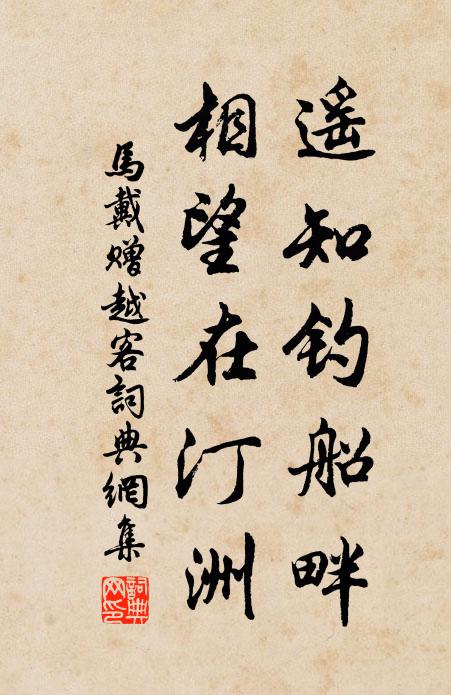 遥知钓船畔
相望在汀洲
馬戴贈越客詞典網集
詞典网印